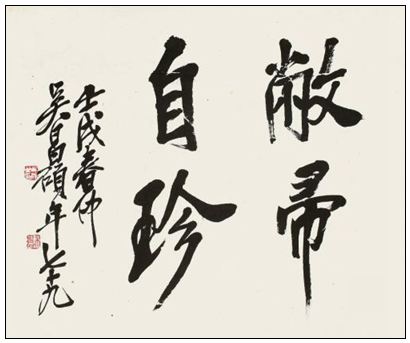 敝帚
自珍
壬戌春仲
吴昌碩年七十九